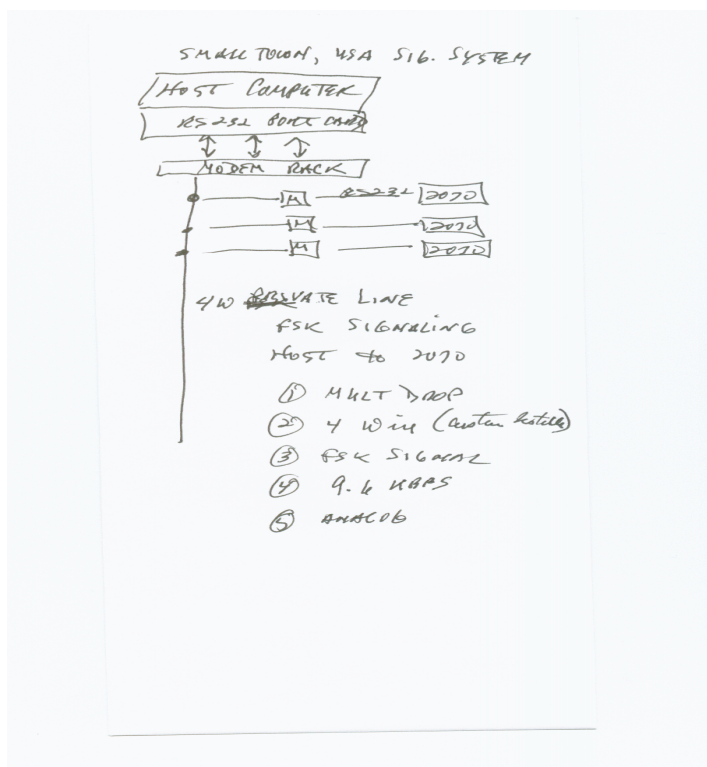 SMALL TOWN, USA SIG. SYSTEM
HOST COMPUTER
RS232 PORT CARD
MODEM RACK
M RS232 2070
M 2070
M 2070
4W PRIVATE LINE
FSK SIGNALING
HOST to 2070
① MULTDROP
② 4 Wire (
③ FSK SIGNAL
④ 9.6 KBPS
⑤ ANALOG